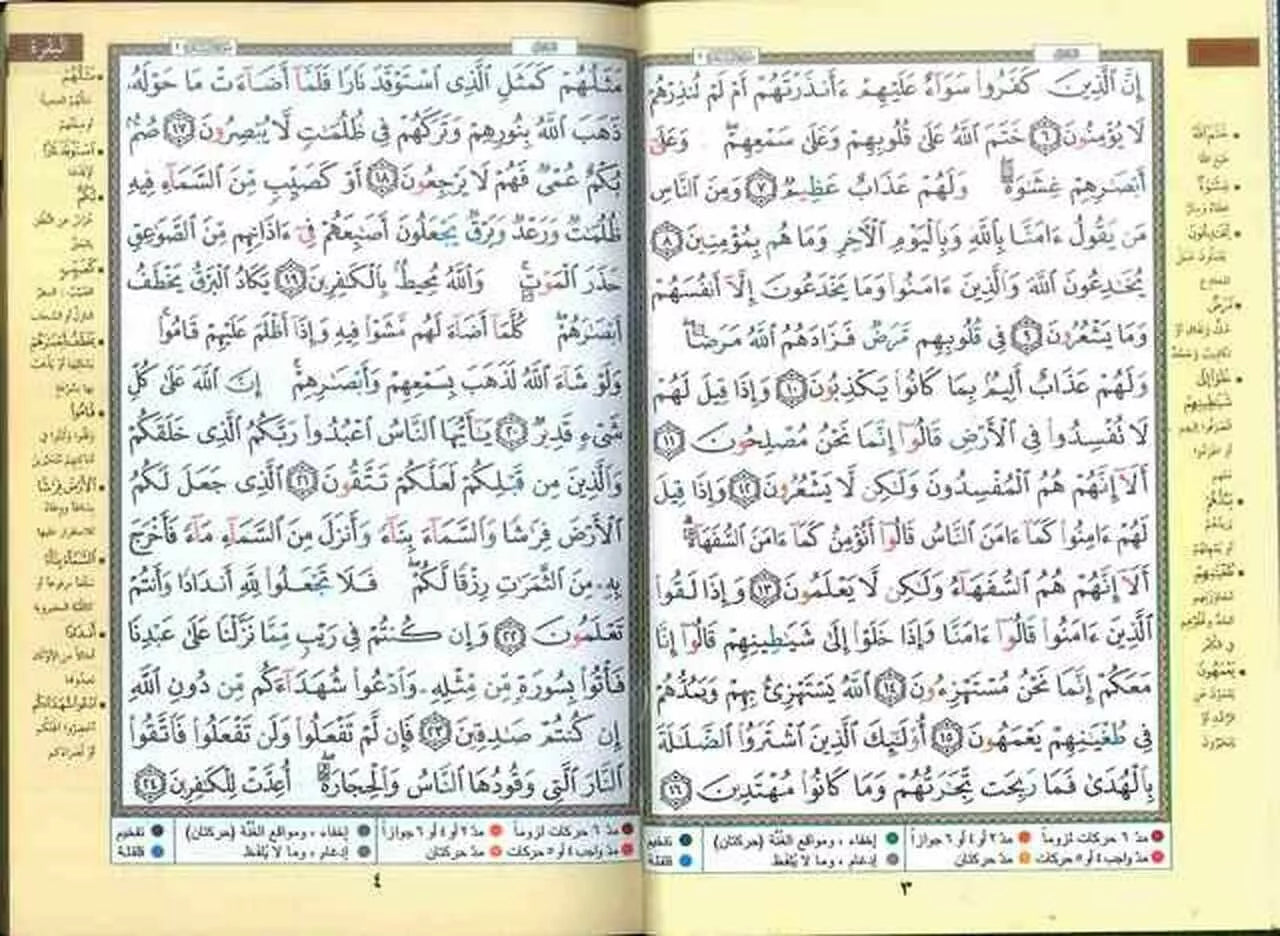 إِنَّ الَّذِينَ كَفَرُوا سَوَاءٌ عَلَيْهِمْ ءَأَنذَرْتَهُمْ أَمْ لَمْ تُنذِرْهُمْ
لَا يُؤْمِنُونَ ٦ خَتَمَ اللَّهُ عَلَىٰ قُلُوبِهِمْ وَعَلَىٰ سَمْعِهِمْ وَعَلَىٰ
أَبْصَٰرِهِمْ غِشَٰوَةٌ وَلَهُمْ عَذَابٌ عَظِيمٌ ٧ وَمِنَ النَّاسِ
مَن يَقُولُ ءَامَنَّا بِاللَّهِ وَبِالْيَوْمِ الْآخِرِ وَمَا هُم بِمُؤْمِنِينَ ٨
يُخَٰدِعُونَ اللَّهَ وَالَّذِينَ ءَامَنُوا وَمَا يَخْدَعُونَ إِلَّا أَنفُسَهُمْ
وَمَا يَشْعُرُونَ ٩ فِي قُلُوبِهِم مَّرَضٌ فَزَادَهُمُ اللَّهُ مَرَضًا
وَلَهُمْ عَذَابٌ أَلِيمٌ بِمَا كَانُوا يَكْذِبُونَ ١٠ وَإِذَا قِيلَ لَهُمْ
لَا تُفْسِدُوا فِي الْأَرْضِ قَالُوا إِنَّمَا نَحْنُ مُصْلِحُونَ ١١
أَلَا إِنَّهُمْ هُمُ الْمُفْسِدُونَ وَلَٰكِن لَّا يَشْعُرُونَ ١٢ وَإِذَا قِيلَ
لَهُمْ ءَامِنُوا كَمَا ءَامَنَ النَّاسُ قَالُوا أَنُؤْمِنُ كَمَا ءَامَنَ السُّفَهَاءُ
أَلَا إِنَّهُمْ هُمُ السُّفَهَاءُ وَلَٰكِن لَّا يَعْلَمُونَ ١٣ وَإِذَا لَقُوا
الَّذِينَ ءَامَنُوا قَالُوا ءَامَنَّا وَإِذَا خَلَوْا إِلَىٰ شَيَٰطِينِهِمْ قَالُوا إِنَّا
مَعَكُمْ إِنَّمَا نَحْنُ مُسْتَهْزِءُونَ ١٤ اللَّهُ يَسْتَهْزِئُ بِهِمْ وَيَمُدُّهُمْ
فِي طُغْيَٰنِهِمْ يَعْمَهُونَ ١٥ أُولَٰئِكَ الَّذِينَ اشْتَرَوُا الضَّلَٰلَةَ
بِالْهُدَىٰ فَمَا رَبِحَت تِّجَٰرَتُهُمْ وَمَا كَانُوا مُهْتَدِينَ ١٦
مدّ ٦ حركات لزوماً مدّ ٢ أو ٤ أو ٦ جوازاً إخفاء ، ومواقع الغنّة (حركتان) تفخيم
مدّ واجب ٤ أو ٥ حركات مدّ حركتان إدغام ، وما لا يُلفظ قلقلة
٣
البقرة
مَثَلُهُمْ كَمَثَلِ الَّذِي اسْتَوْقَدَ نَارًا فَلَمَّا أَضَاءَتْ مَا حَوْلَهُ
ذَهَبَ اللَّهُ بِنُورِهِمْ وَتَرَكَهُمْ فِي ظُلُمَٰتٍ لَّا يُبْصِرُونَ ١٧ صُمٌّ
بُكْمٌ عُمْيٌ فَهُمْ لَا يَرْجِعُونَ ١٨ أَوْ كَصَيِّبٍ مِّنَ السَّمَاءِ فِيهِ
ظُلُمَٰتٌ وَرَعْدٌ وَبَرْقٌ يَجْعَلُونَ أَصَٰبِعَهُمْ فِي ءَاذَانِهِم مِّنَ الصَّوَٰعِقِ
حَذَرَ الْمَوْتِ وَاللَّهُ مُحِيطٌ بِالْكَٰفِرِينَ ١٩ يَكَادُ الْبَرْقُ يَخْطَفُ
أَبْصَٰرَهُمْ كُلَّمَا أَضَاءَ لَهُم مَّشَوْا فِيهِ وَإِذَا أَظْلَمَ عَلَيْهِمْ قَامُوا
وَلَوْ شَاءَ اللَّهُ لَذَهَبَ بِسَمْعِهِمْ وَأَبْصَٰرِهِمْ إِنَّ اللَّهَ عَلَىٰ كُلِّ
شَيْءٍ قَدِيرٌ ٢٠ يَٰأَيُّهَا النَّاسُ اعْبُدُوا رَبَّكُمُ الَّذِي خَلَقَكُمْ
وَالَّذِينَ مِن قَبْلِكُمْ لَعَلَّكُمْ تَتَّقُونَ ٢١ الَّذِي جَعَلَ لَكُمُ
الْأَرْضَ فِرَٰشًا وَالسَّمَاءَ بِنَاءً وَأَنزَلَ مِنَ السَّمَاءِ مَاءً فَأَخْرَجَ
بِهِ مِنَ الثَّمَرَٰتِ رِزْقًا لَّكُمْ فَلَا تَجْعَلُوا لِلَّهِ أَندَادًا وَأَنتُمْ
تَعْلَمُونَ ٢٢ وَإِن كُنتُمْ فِي رَيْبٍ مِّمَّا نَزَّلْنَا عَلَىٰ عَبْدِنَا
فَأْتُوا بِسُورَةٍ مِّن مِّثْلِهِ وَادْعُوا شُهَدَاءَكُم مِّن دُونِ اللَّهِ
إِن كُنتُمْ صَٰدِقِينَ ٢٣ فَإِن لَّمْ تَفْعَلُوا وَلَن تَفْعَلُوا فَاتَّقُوا
النَّارَ الَّتِي وَقُودُهَا النَّاسُ وَالْحِجَارَةُ أُعِدَّتْ لِلْكَٰفِرِينَ ٢٤
مدّ ٦ حركات لزوماً مدّ ٢ أو ٤ أو ٦ جوازاً إخفاء ، ومواقع الغنّة (حركتان) تفخيم
مدّ واجب ٤ أو ٥ حركات مدّ حركتان إدغام ، وما لا يُلفظ قلقلة
٤